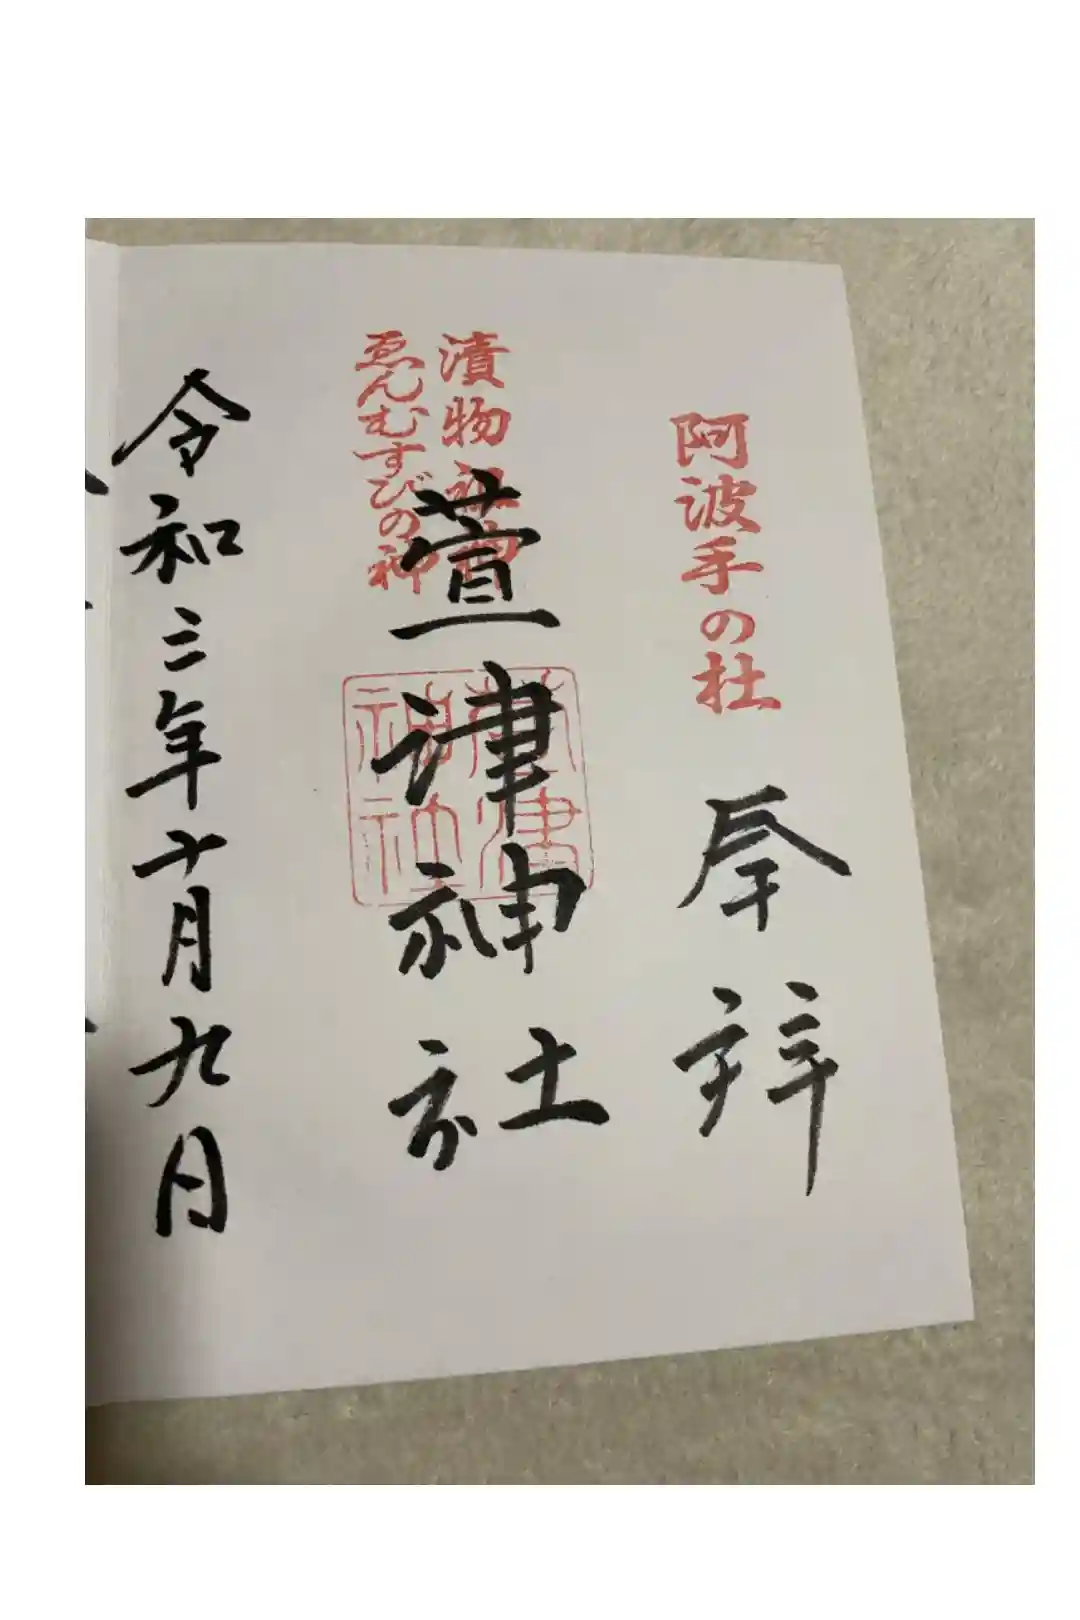 阿波手の杜
奉拝
漬物祖神
ゑんむすびの神
萱津神社
萱津
神社
令和三年十月九日